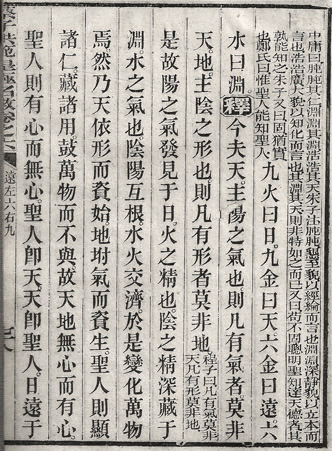 中庸曰肫肫其仁淵淵其淵浩浩其天朱子註肫肫懇至貌以經綸而言也淵淵靜深貌以立本而
言也浩浩廣大貌以知化而言也其淵其天則非特如之而已又曰苟不固聰明聖知達天德者其
孰能知之朱子又曰固猶實
也鄭氏曰惟聖人能知聖人 九火曰日九金曰天六金曰遠六
水曰淵釋今夫天主陽之氣也則凡有氣者莫非
天地主陰之形也則凡有形者莫非地程子曰凡有氣莫非
天凡有形莫非地
是故陽之氣發見于日火之精也陰之精深藏于
淵水之氣也陰陽互根水火交濟於是變化萬物
焉然乃天依形而資始地坿氣而資生聖人則顯
諸仁藏諸用鼓萬物而不與故天地無心而有心
聖人則有心而無心聖人卽天天卽聖人日遠于
遠左六右九